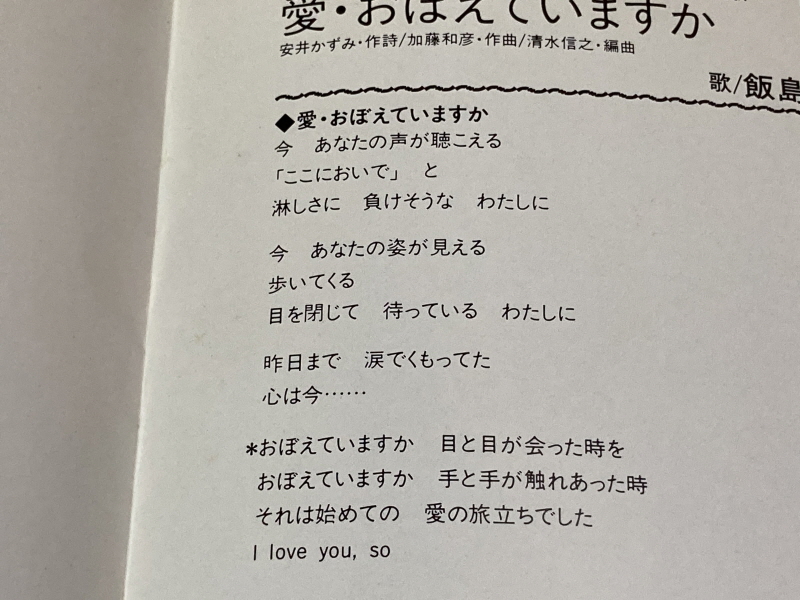 愛・おぼえていますか
安井かずみ・作詩/加藤和彦・作曲/清水信之・編曲
歌/飯島
◆愛・おぼえていますか
今 あなたの声が聴こえる
「ここにおいで」 と
淋しさに 負けそうな わたしに
今 あなたの姿が見える
歩いてくる
目を閉じて 待っている わたしに
昨日まで 涙でくもってた
心は今……
*おぼえていますか 目と目が会った時を
おぼえていますか 手と手が触れあった時
それは始めての 愛の旅立ちでした
I love you, so